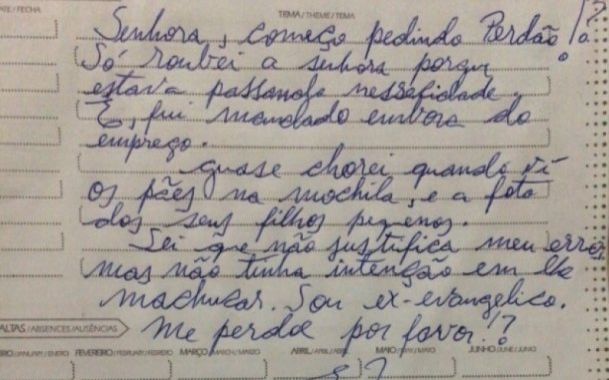 ATE / FECHA
TEMA / THEME / TEMA
Senhora, começo pedindo Perdão!
Só roubei a senhora porque
estava passando nessesidade.
E, fui mandado embora do
emprego.
quase chorei quando vi
os pães na mochila, e a foto
dos seus filhos pequenos.
Sei que não justifica meu erro,
mas não tinha intenção em lhe
machucar. Sou ex-evangelico.
Me perdoe por favor!?
ALTAS / ABSENCES / AUSÊNCIAS
FEVEREIRO / FEBRUARY / FEBRERO MARÇO / MARCH / MARZO ABRIL / APRIL / ABRIL MAIO / MAY / MAYO JUNHO / JUNE / JUNIO